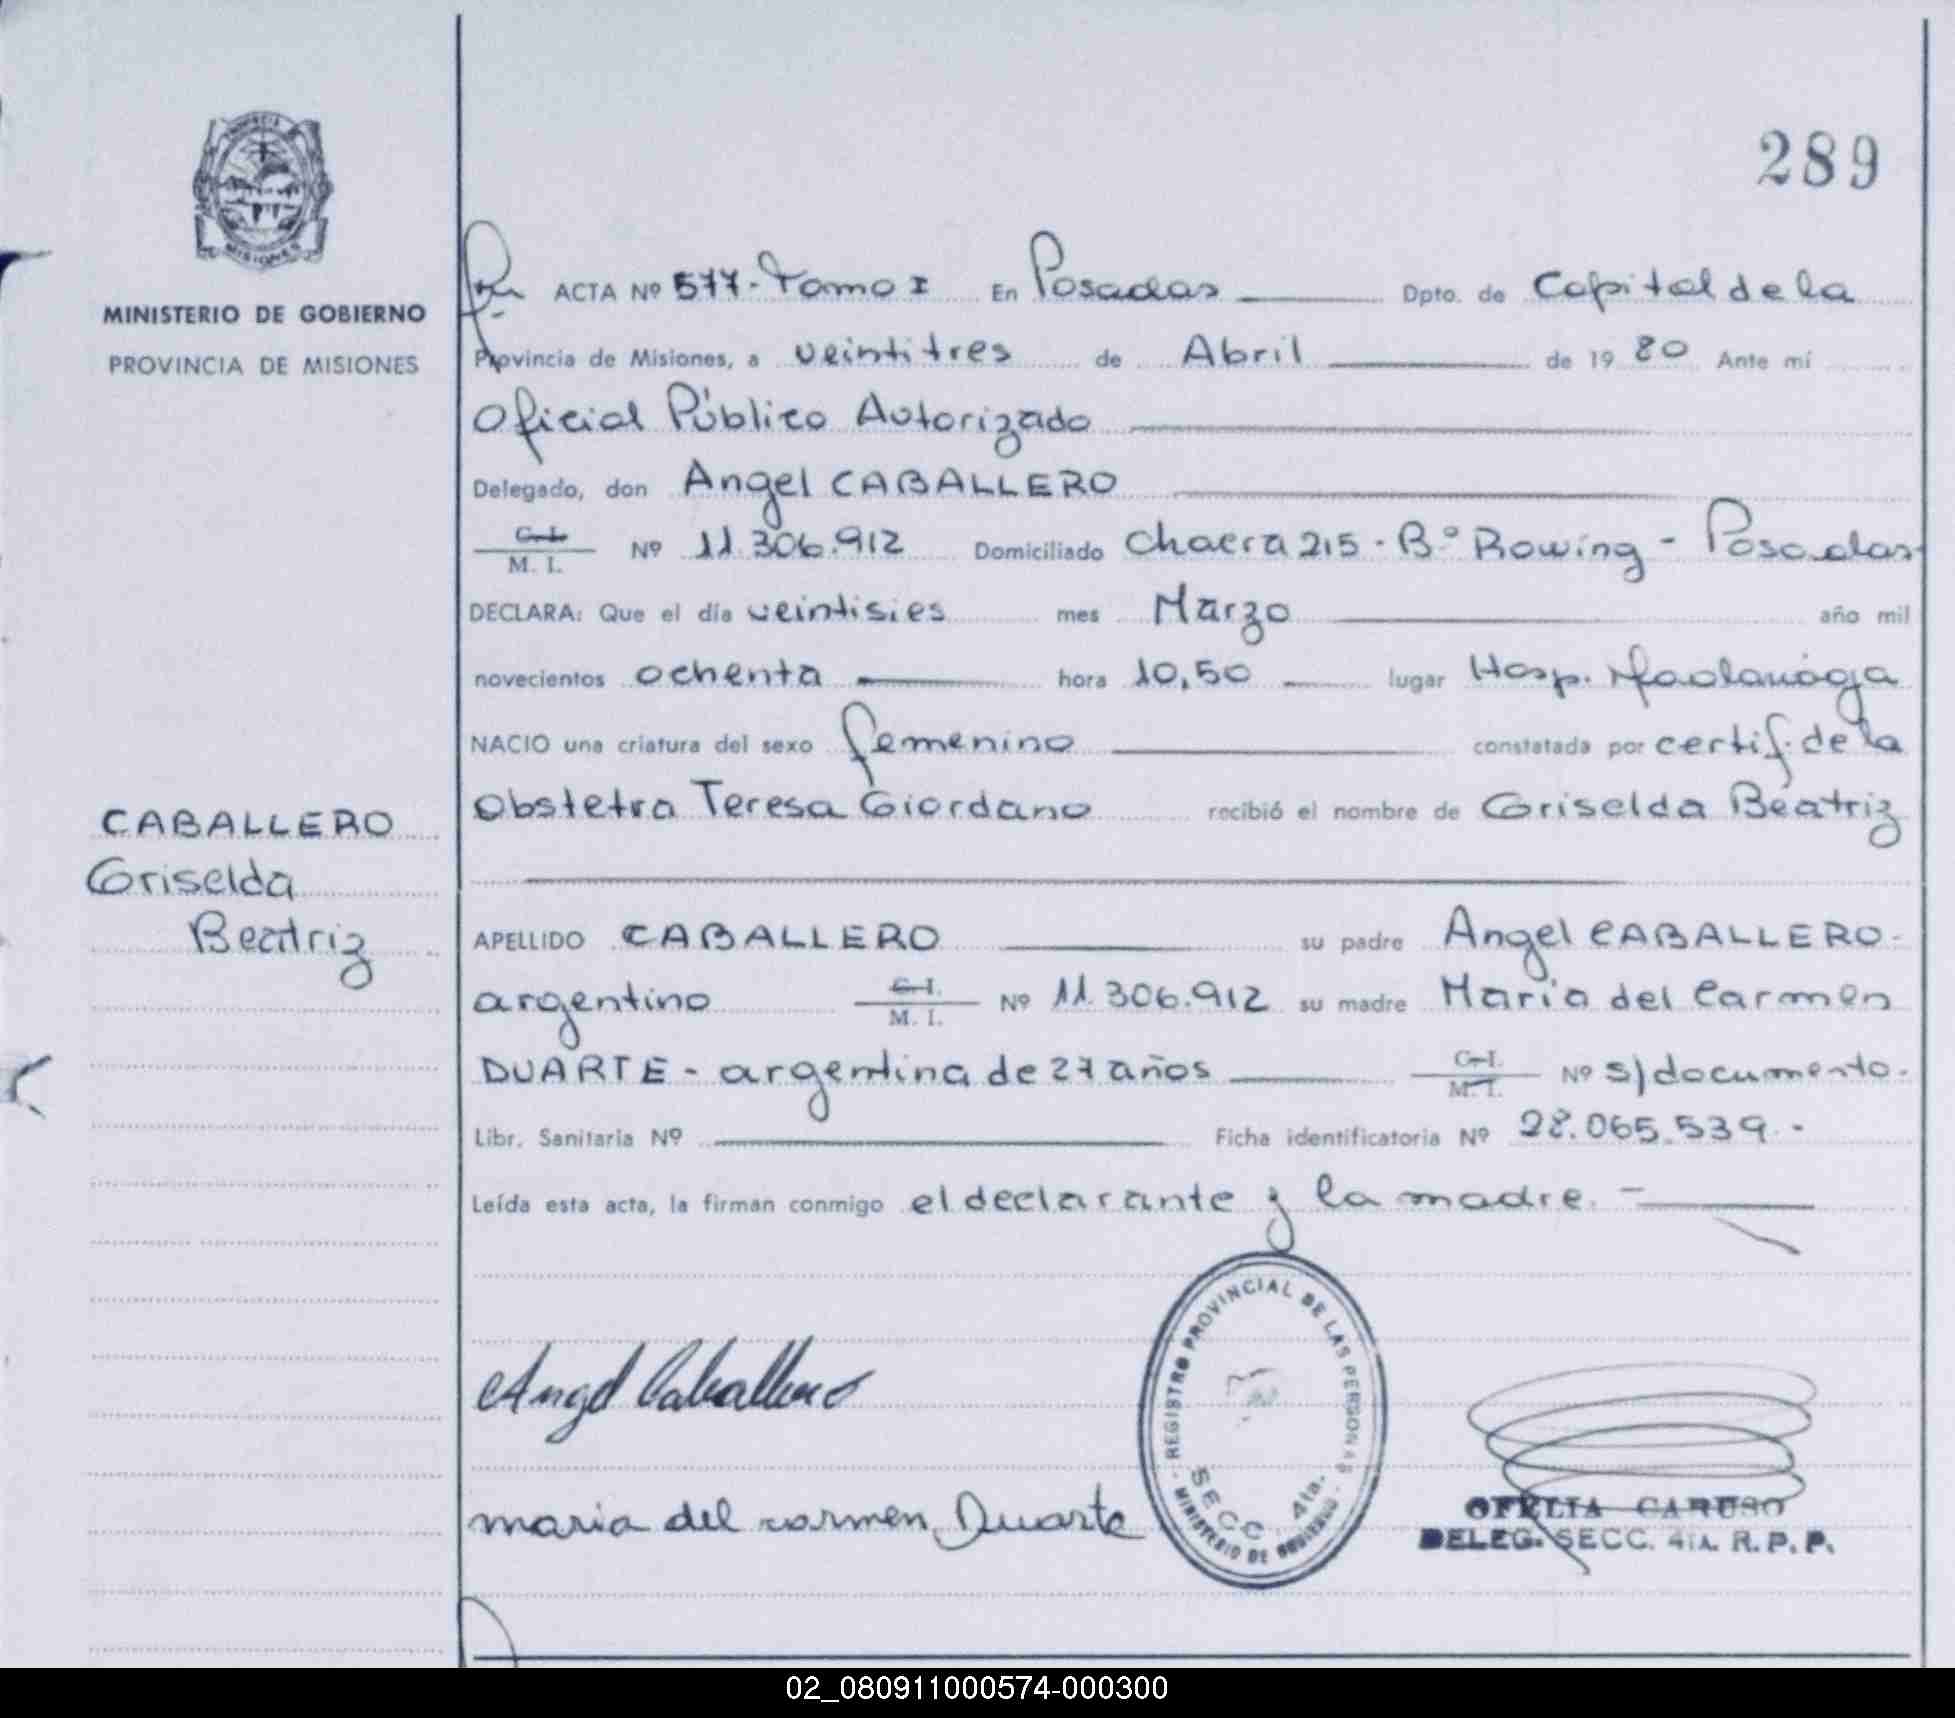 289
MINISTERIO DE GOBIERNO
PROVINCIA DE MISIONES
ACTA Nº 577 - Tomo I En Posadas Dpto. de Capital de la
Provincia de Misiones, a veintitres de Abril de 1980 Ante mí
Oficial Público Autorizado
Delegado, don Angel CABALLERO
C. I. / M. I. Nº 11.306.912 Domiciliado Chacra 215 - Bº Rowing - Posadas
DECLARA: Que el día veintisies mes Marzo año mil
novecientos ochenta hora 10,50 lugar Hosp. Madariaga
NACIO una criatura del sexo femenino constatada por certif. de la
Obstetra Teresa Giordano recibió el nombre de Griselda Beatriz
CABALLERO
Griselda
Beatriz
APELLIDO CABALLERO su padre Angel CABALLERO -
argentino C. I. / M. I. Nº 11.306.912 su madre Maria del Carmen
DUARTE - argentina de 27 años C. I. / M. I. Nº s/documento.
Libr. Sanitaria Nº Ficha identificatoria Nº 28.065.539.-
Leída esta acta, la firman conmigo el declarante y la madre. -
Angel Caballero
maria del carmen Duarte
REGISTRO PROVINCIAL DE LAS PERSONAS
SECC. 4ta.
MINISTERIO DE GOBIERNO
OFELIA CARUSO
DELEG. SECC. 4ta. R. P. P.
02_080911000574-000300